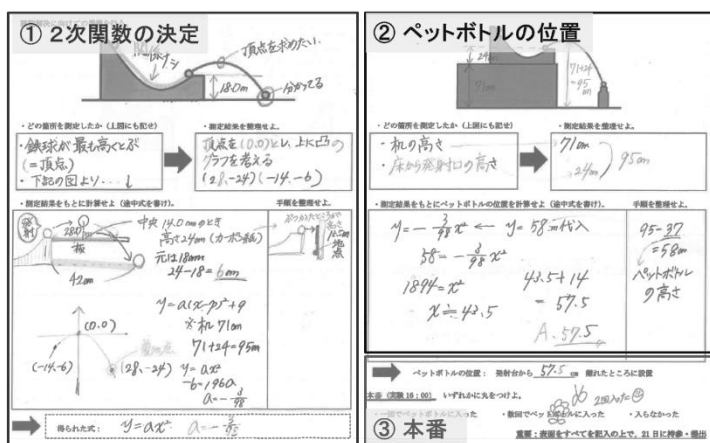 ① 2次関数の決定
頂点を求めたい
分かってる
18.0m
・どの箇所を測定したか（上図にも記せ）
・測定結果を整理せよ。
・鉄球が最も高くとぶ
(＝頂点)
・下記の図より…↓
頂点を(0.0)とし、上に凸の
グラフを考える
(28,-24)(-14,-6)
・測定結果をもとに計算せよ（途中式を書け）。
手順を整理せよ。
発射
28.0
板
42cm
中央 14.0mのとき
高さ24cm (カーボン紙)
元は18cm
24-18=6cm
地点
y=a(x-p)²+q
※机 71cm
71+24=95cm
(0.0)
(-14,-6)
(28,-24)
y=ax²
-6=196a
a=-3/98
得られた式：
y=ax²
② ペットボトルの位置
24cm
71cm
71+24
=95
cm
・どの箇所を測定したか（上図にも記せ）
・測定結果を整理せよ。
・机の高さ
・床から発射口の高さ
71cm
24cm
95cm
・測定結果をもとにペットボトルの位置を計算せよ（途中式を書け）。
手順を整理せよ。
y=-3/98x² ← y=58を代入
58=-3/98x²
1894=x²
x≒43.5
43.5+14
=57.5
A.57.5
95-37
=58cm
ペットボトル
の高さ
ペットボトルの位置： 発射台から 57.5 cm 離れたところに設置
本番（実験 16：00） いずれかに丸をつけよ。
・一回でペットボトルに入った ・数回でペットボトルに入った ・入らなかった
③ 本番
重要：表面をすべてを記入の上で、21日に持参・提出